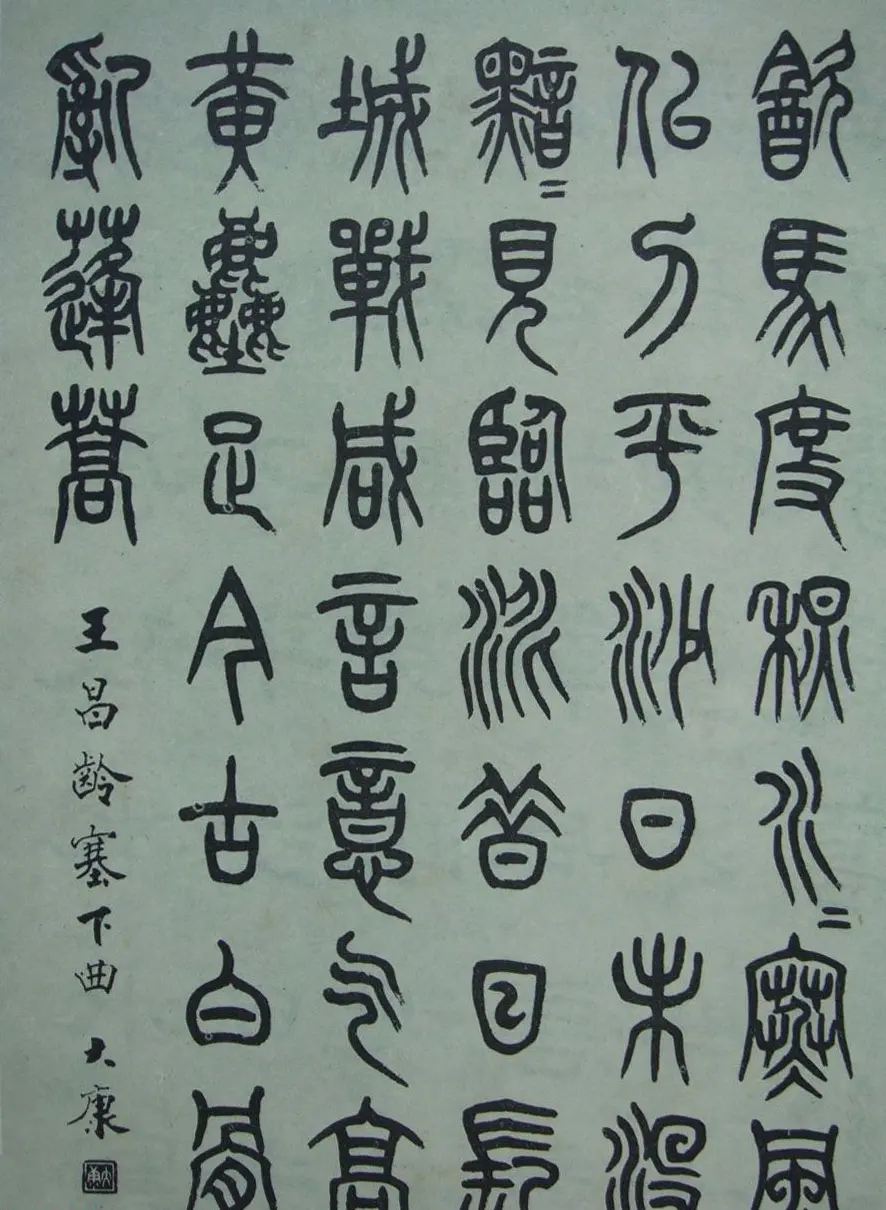 飲馬度秋水〻寒風
似刀平沙日未沒
黯〻見臨洮昔日長
城戰咸言意气高
黃塵足今古白骨
亂蓬蒿 王昌齡塞下曲 大康